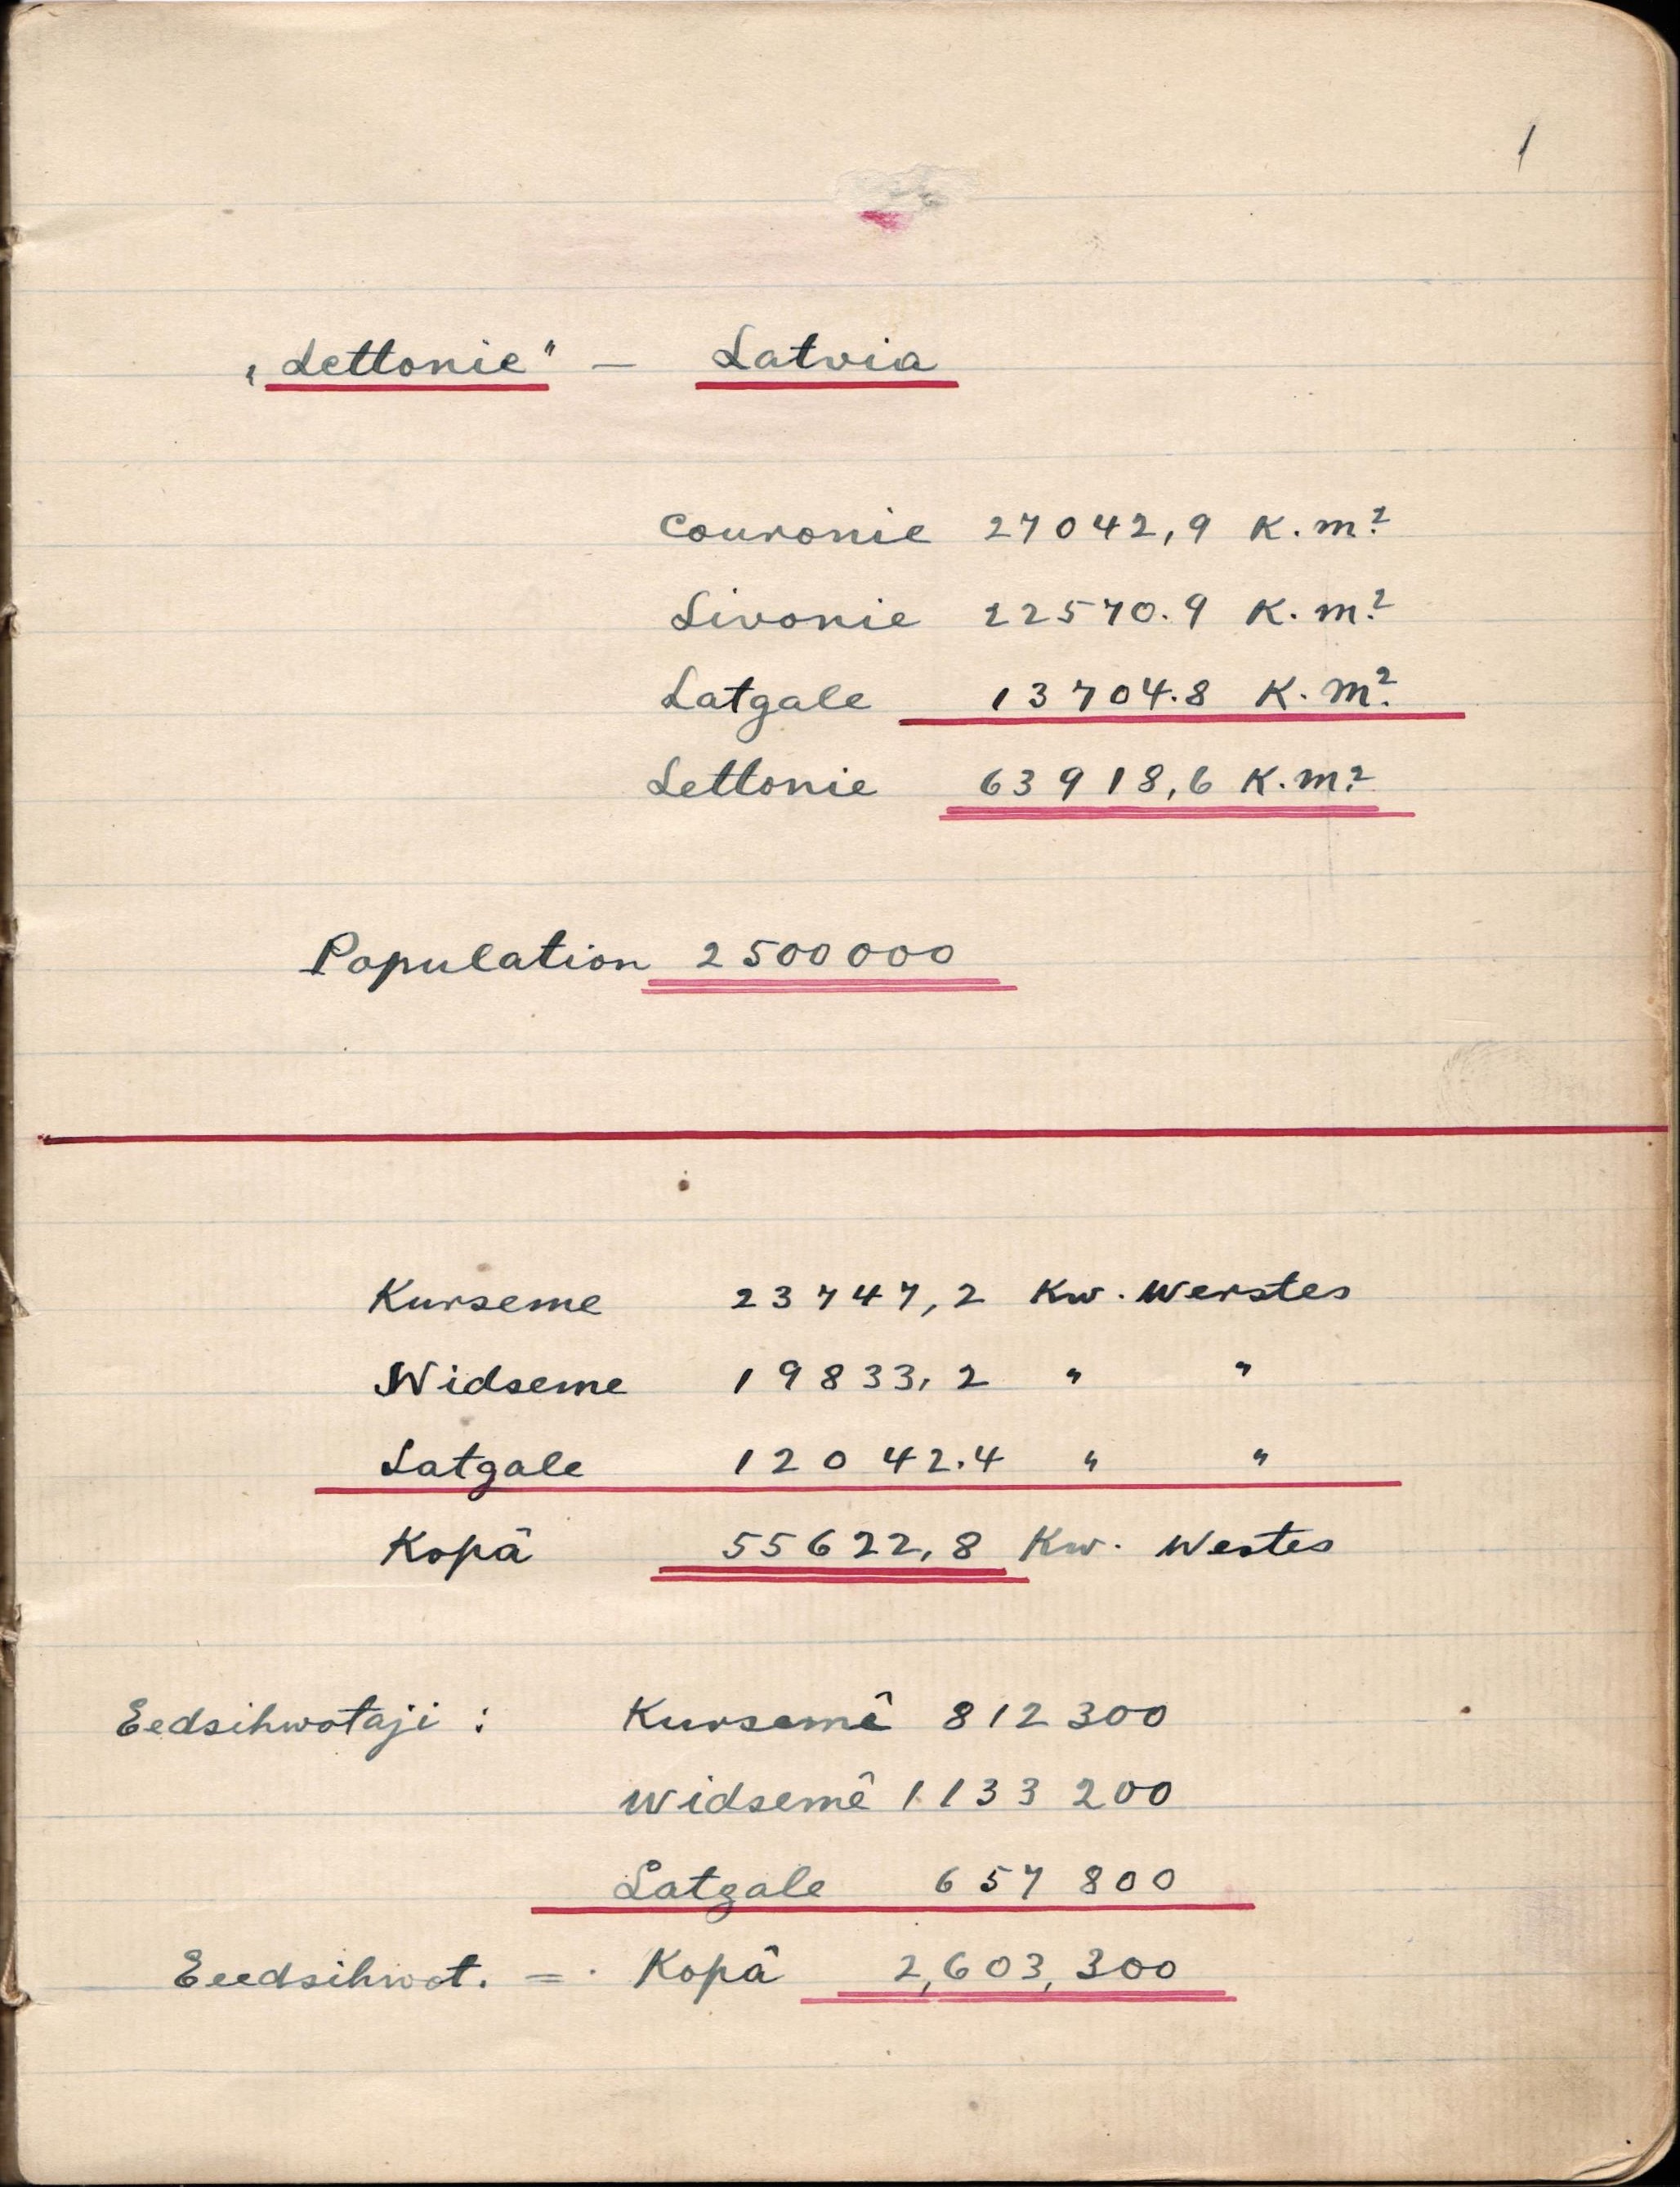 1
„Lettonie" – Latvia
Couronie 27042,9 K.m²
Livonie 22570.9 K.m²
Latgale 13704.8 K.m²
Lettonie 63918,6 K.m²
Population 2500000
Kurseme 23747,2 Kw. Werstes
Widseme 19833,2 " "
Latgale 12042.4 " "
Kopâ 55622,8 Kw. Westes
Eedsihwotaji : Kursemê 812300
Widsemê 1133 200
Latgale 657 800
Eedsihwot. = Kopâ 2,603,300